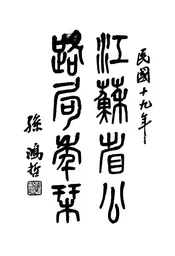 民國十九年
江蘇省公
路局年栞
孫鴻哲